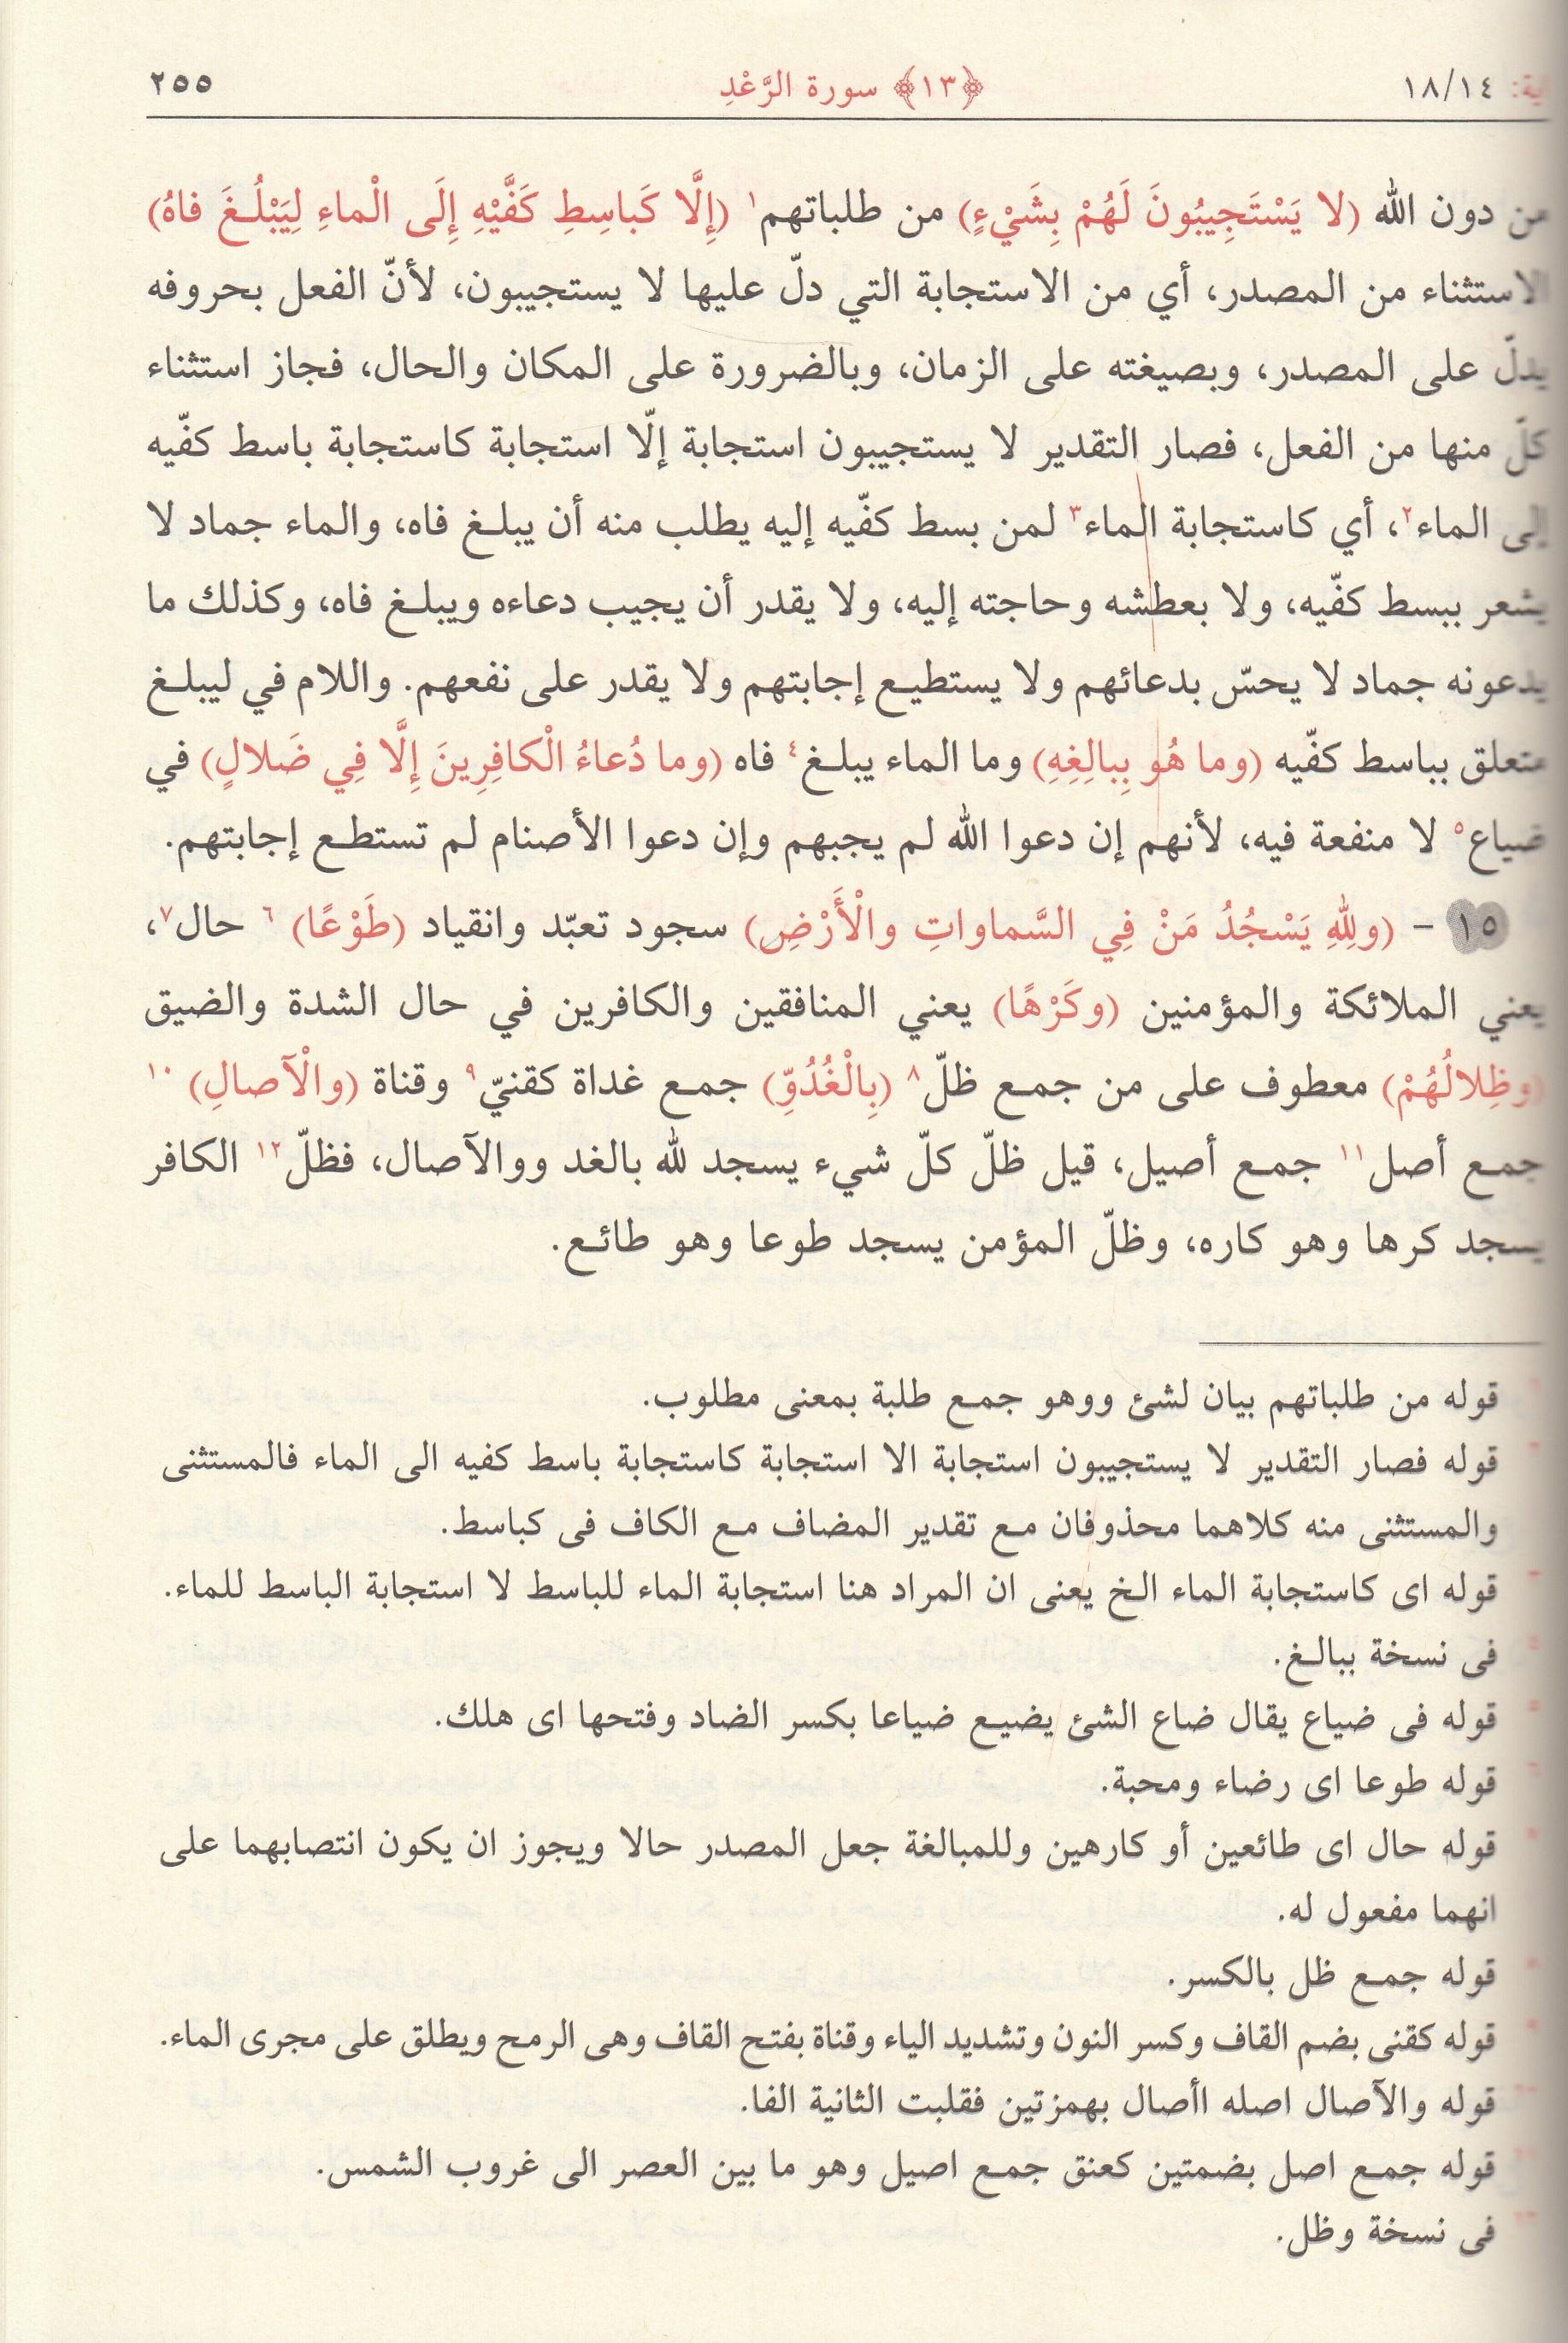 آية: ١٨/١٤ ﴿١٣﴾ سورة الرَّعْدِ ٢٥٥
من دون الله (لا يَسْتَجِيبُونَ لَهُمْ بِشَيْءٍ) من طلباتهم١ (إِلَّا كَباسِطِ كَفَّيْهِ إِلَى الْماءِ لِيَبْلُغَ فاهُ)
الاستثناء من المصدر، أي من الاستجابة التي دلّ عليها لا يستجيبون، لأنّ الفعل بحروفه
يدلّ على المصدر، وبصيغته على الزمان، وبالضرورة على المكان والحال، فجاز استثناء
كلّ منها من الفعل، فصار التقدير لا يستجيبون استجابة إلّا استجابة كاستجابة باسط كفّيه
إلى الماء٢، أي كاستجابة الماء٣ لمن بسط كفّيه إليه يطلب منه أن يبلغ فاه، والماء جماد لا
يشعر ببسط كفّيه، ولا بعطشه وحاجته إليه، ولا يقدر أن يجيب دعاءه ويبلغ فاه، وكذلك ما
يدعونه جماد لا يحسّ بدعائهم ولا يستطيع إجابتهم ولا يقدر على نفعهم. واللام في ليبلغ
متعلق بباسط كفّيه (وما هُو بِبالِغِهِ) وما الماء يبلغ٤ فاه (وما دُعاءُ الْكافِرِينَ إِلَّا فِي ضَلالٍ) في
ضياع٥ لا منفعة فيه، لأنهم إن دعوا الله لم يجبهم وإن دعوا الأصنام لم تستطع إجابتهم.
١٥ - (ولِلّٰهِ يَسْجُدُ مَنْ فِي السَّماواتِ والْأَرْضِ) سجود تعبّد وانقياد (طَوْعًا) ٦ حال٧،
يعني الملائكة والمؤمنين (وكَرْهًا) يعني المنافقين والكافرين في حال الشدة والضيق
(وظِلالُهُمْ) معطوف على من جمع ظلّ٨ (بِالْغُدُوِّ) جمع غداة كقنيّ٩ وقناة (والْآصالِ) ١٠
جمع أصل١١ جمع أصيل، قيل ظلّ كلّ شيء يسجد لله بالغد ووالآصال، فظلّ١٢ الكافر
يسجد كرها وهو كاره، وظلّ المؤمن يسجد طوعا وهو طائع.
قوله من طلباتهم بيان لشئ ووهو جمع طلبة بمعنى مطلوب.
قوله فصار التقدير لا يستجيبون استجابة الا استجابة كاستجابة باسط كفيه الى الماء فالمستثنى
والمستثنى منه كلاهما محذوفان مع تقدير المضاف مع الكاف فى كباسط.
قوله اى كاستجابة الماء الخ يعنى ان المراد هنا استجابة الماء للباسط لا استجابة الباسط للماء.
فى نسخة ببالغ.
قوله فى ضياع يقال ضاع الشئ يضيع ضياعا بكسر الضاد وفتحها اى هلك.
قوله طوعا اى رضاء ومحبة.
قوله حال اى طائعين أو كارهين وللمبالغة جعل المصدر حالا ويجوز ان يكون انتصابهما على
انهما مفعول له.
قوله جمع ظل بالكسر.
قوله كقنى بضم القاف وكسر النون وتشديد الياء وقناة بفتح القاف وهى الرمح ويطلق على مجرى الماء.
قوله والآصال اصله اأصال بهمزتين فقلبت الثانية الفا.
قوله جمع اصل بضمتين كعنق جمع اصيل وهو ما بين العصر الى غروب الشمس.
فى نسخة وظل.